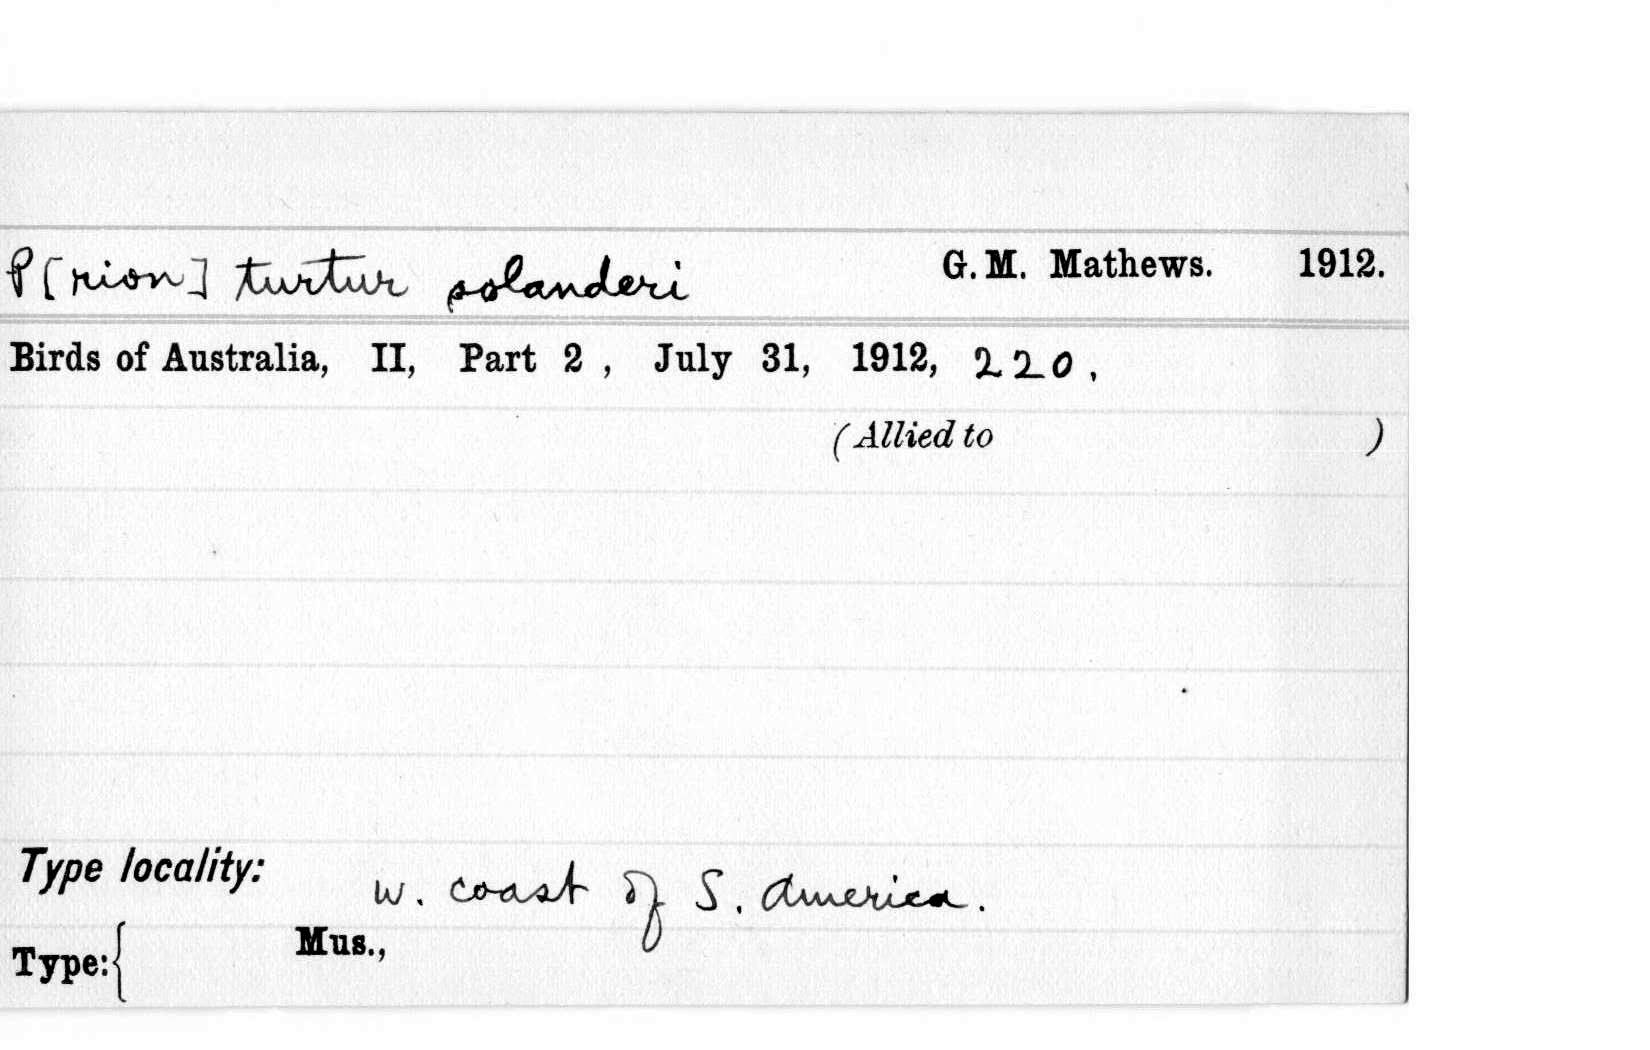 P[rion] turtur solanderi G. M. Mathews. 1912.
Birds of Australia, II, Part 2 , July 31, 1912, 220.
(Allied to )
Type locality: W. coast of S. America.
Type:{ Mus.,